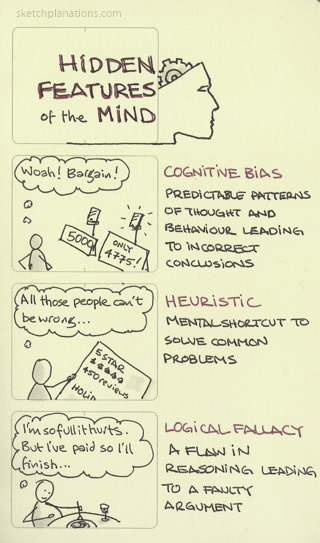 sketchplanations.com
HIDDEN
FEATURES
of the MIND
Woah! Bargain!
5000
ONLY
4775!
COGNITIVE BIAS
PREDICTABLE PATTERNS
OF THOUGHT AND
BEHAVIOUR LEADING
TO INCORRECT
CONCLUSIONS
All those people can't
be wrong...
5 STAR
450 reviews
HOLI
HEURISTIC
MENTAL SHORTCUT TO
SOLVE COMMON
PROBLEMS
I'm so full it hurts.
But I've paid so I'll
finish...
LOGICAL FALLACY
A FLAW IN
REASONING LEADING
TO A FAULTY
ARGUMENT